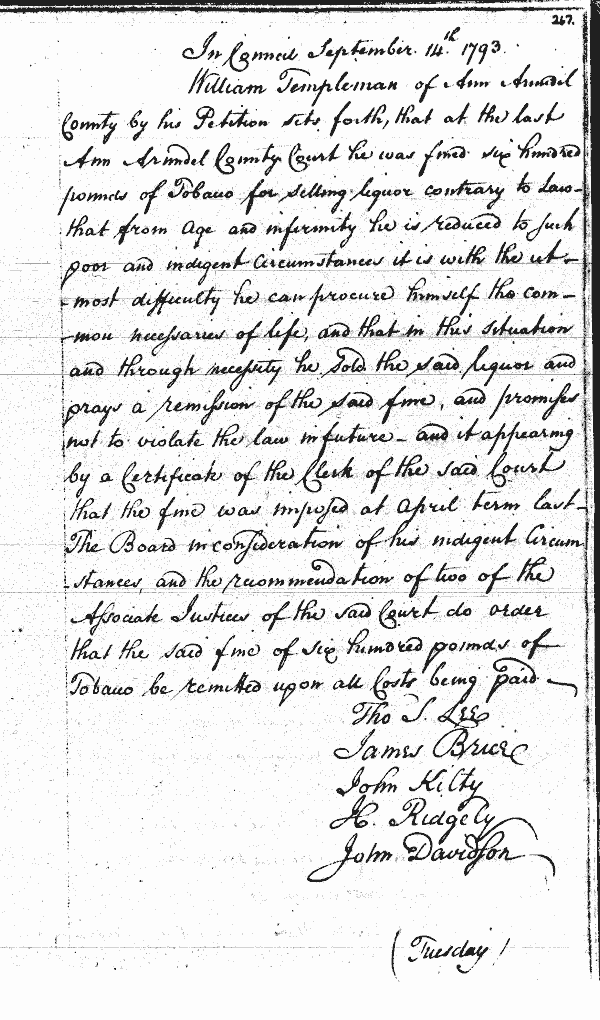 267.
In Council September 14th 1793.
William Templeman of Ann Arundel
County by his Petition sets forth, that at the last
Ann Arundel County Court he was fined six hundred
pounds of Tobacco for selling liquor contrary to Law-
that from Age and infirmity he is reduced to such
poor and indigent Circumstances it is with the ut-
-most difficulty he can procure himself the com-
-mon necessaries of life, and that in this situation
and through necessity he Sold the said liquor and
prays a remission of the said fine, and promises
not to violate the law in future - and it appearing
by a Certificate of the Clerk of the said Court
that the fine was imposed at April term last-
The Board in consideration of his indigent Circum
-stances, and the recommendation of two of the
Associate Justices of the said Court do order
that the said fine of six hundred pounds of
Tobacco be remitted upon all Costs being paid
Tho S. Lee
James Brice
John Kilty
H. Ridgely
John Davidson
(Tuesday)